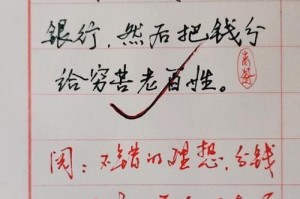 银行，然后把钱分
给穷苦老百姓。
阅：不错的理想，分钱